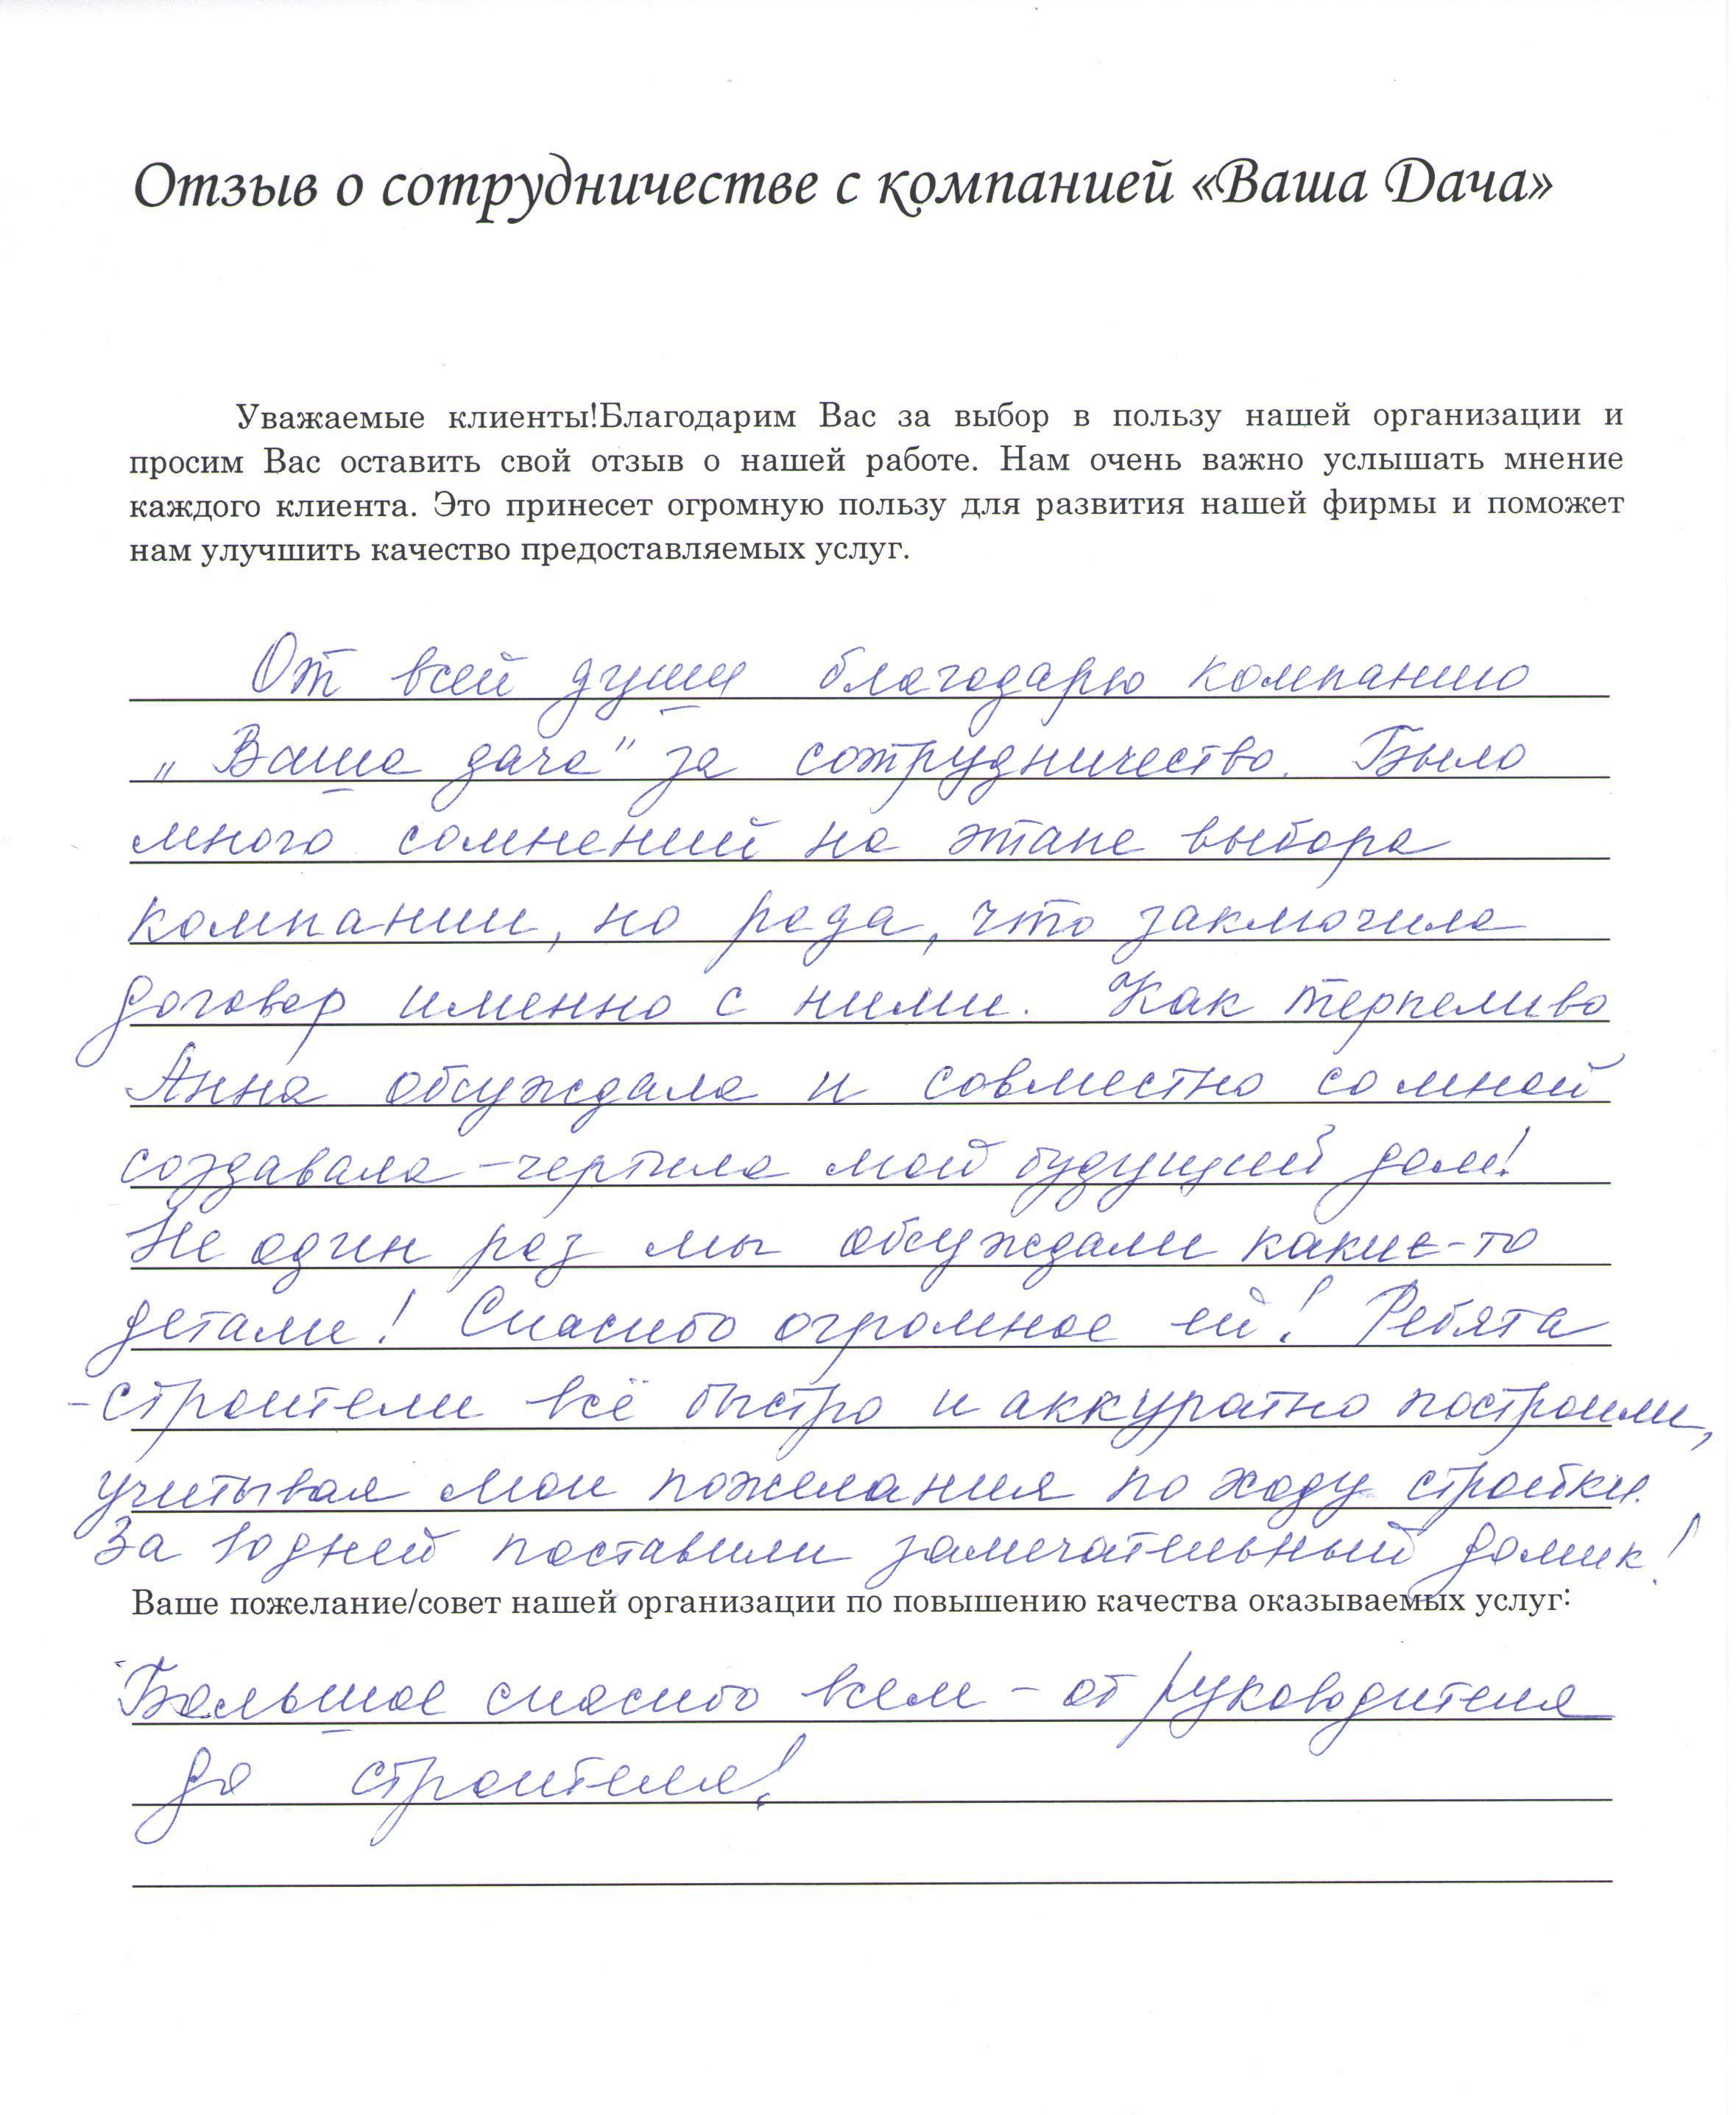 Отзыв о сотрудничестве с компанией «Ваша Дача»
Уважаемые клиенты!Благодарим Вас за выбор в пользу нашей организации и
просим Вас оставить свой отзыв о нашей работе. Нам очень важно услышать мнение
каждого клиента. Это принесет огромную пользу для развития нашей фирмы и поможет
нам улучшить качество предоставляемых услуг.
От всей души благодарю компанию
„Ваша дача" за сотрудничество. Было
много сомнений на этапе выбора
компании, но рада, что заключила
договор именно с ними. Как терпеливо
Анна обсуждала и совместно со мной
создавала-чертила мой будущий дом!
Не один раз мы обсуждали какие-то
детали! Спасибо огромное ей! Ребята
-строители всё быстро и аккуратно построили,
учитывая мои пожелания по ходу стройки.
За 10 дней поставили замечательный домик!
Ваше пожелание/совет нашей организации по повышению качества оказываемых услуг:
Большое спасибо всем - от руководителя
до строителя!